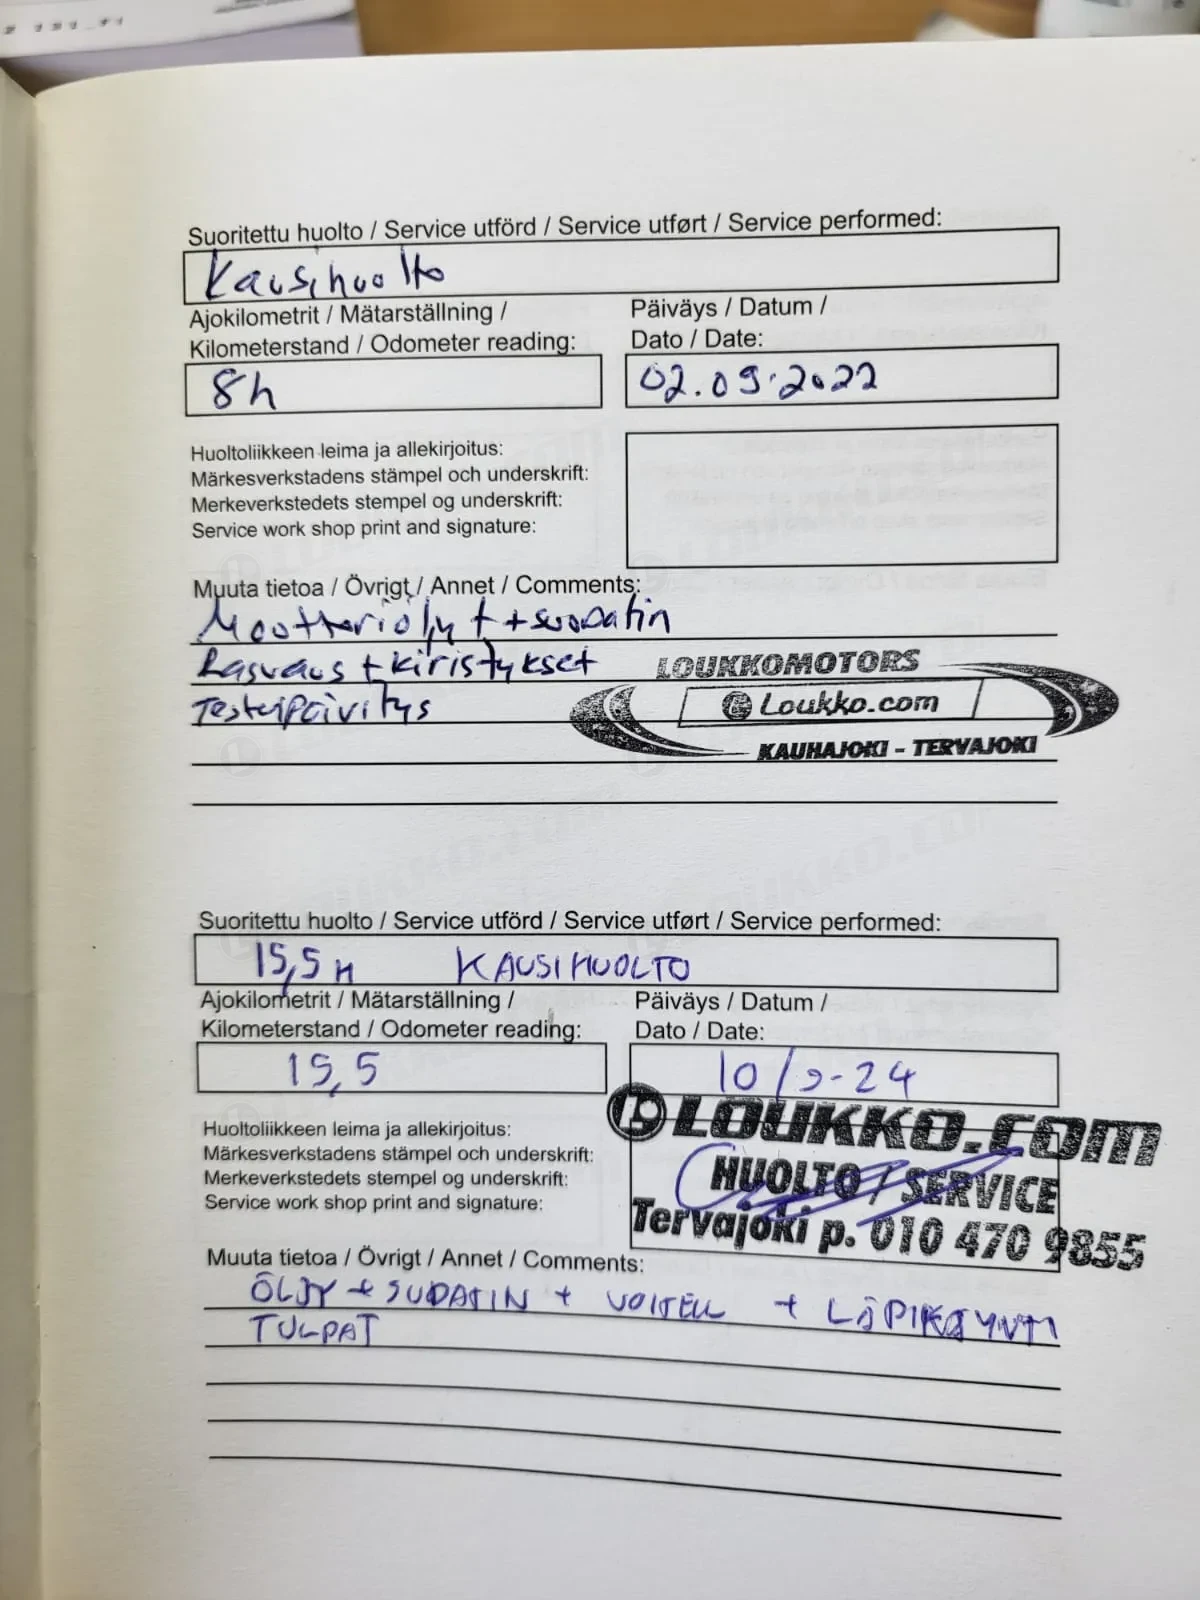 Suoritettu huolto / Service utförd / Service utført / Service performed:
Kausihuolto
Ajokilometrit / Mätarställning /
Kilometerstand / Odometer reading:
8h
Päiväys / Datum /
Dato / Date:
02.09.2022
Huoltoliikkeen leima ja allekirjoitus:
Märkesverkstadens stämpel och underskrift:
Merkeverkstedets stempel og underskrift:
Service work shop print and signature:
Muuta tietoa / Övrigt / Annet / Comments:
Moottoriöljyt + suodatin
Rasvaus + kiristykset
Testeripäivitys
LOUKKOMOTORS
Loukko.com
KAUHAJOKI - TERVAJOKI
Suoritettu huolto / Service utförd / Service utført / Service performed:
15,5 H KAUSIHUOLTO
Ajokilometrit / Mätarställning /
Kilometerstand / Odometer reading:
15,5
Päiväys / Datum /
Dato / Date:
10/9-24
Huoltoliikkeen leima ja allekirjoitus:
Märkesverkstadens stämpel och underskrift:
Merkeverkstedets stempel og underskrift:
Service work shop print and signature:
LOUKKO.COM
HUOLTO / SERVICE
Tervajoki p. 010 470 9855
Muuta tietoa / Övrigt / Annet / Comments:
ÖLJY + SUDATIN + VOITELU + LÄPIKÄYNTI
TULPAT